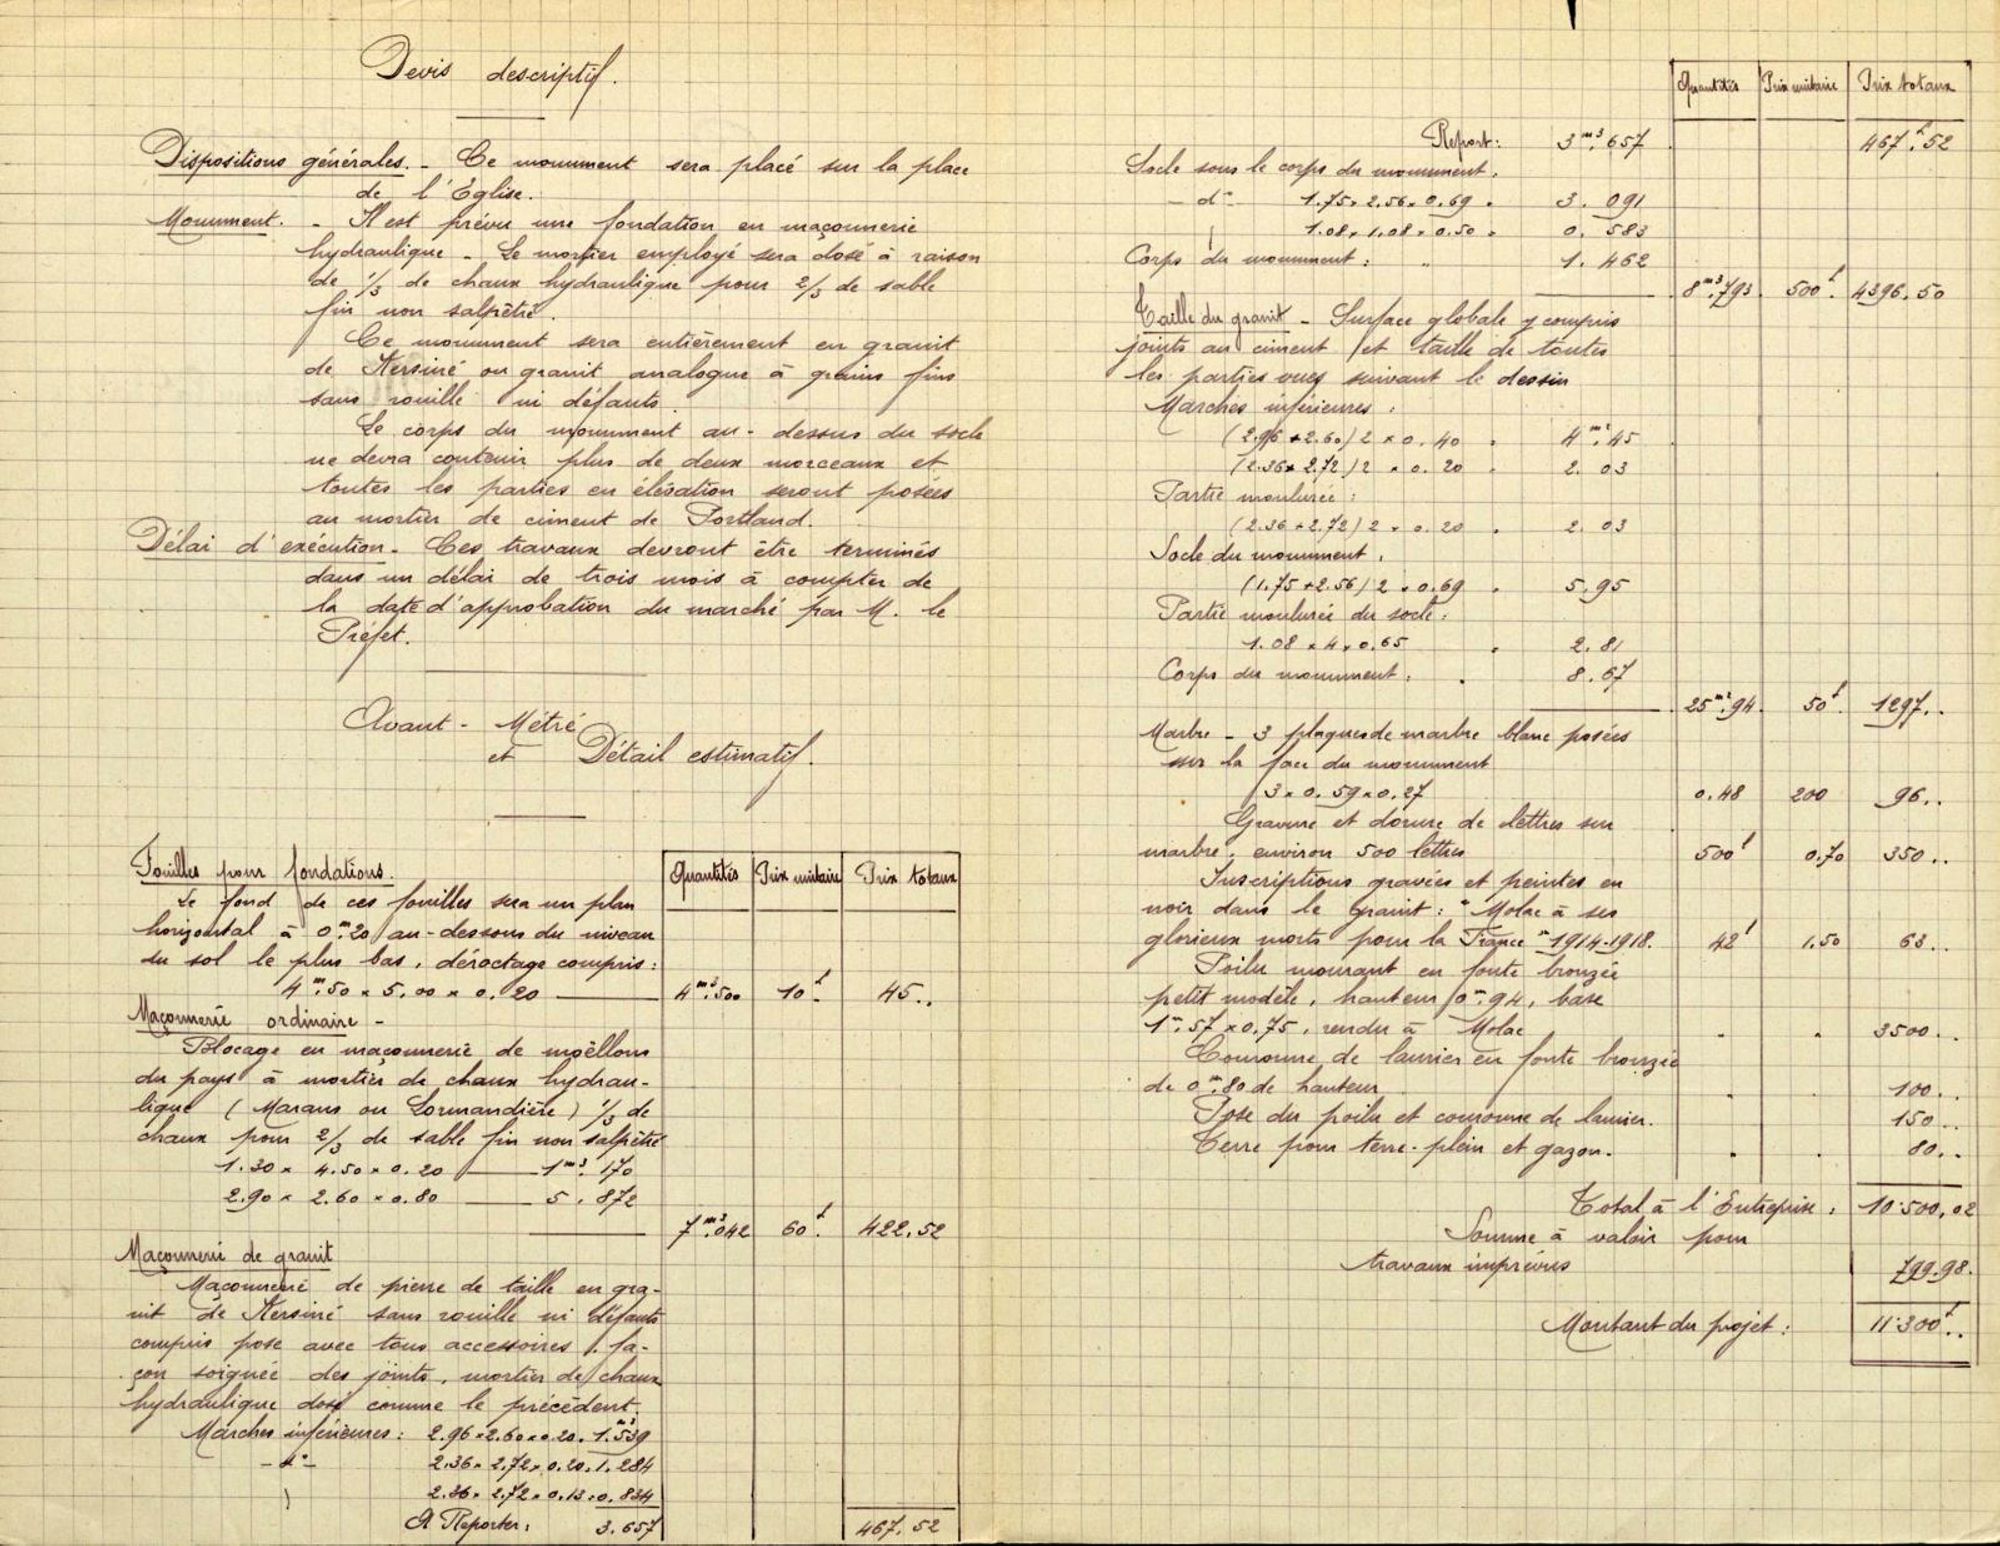 Devis descriptif.
Dispositions générales. - Ce monument sera placé sur la place
de l'Eglise.
Monument. - Il est prévu une fondation en maçonnerie
hydraulique - Le mortier employé sera dosé à raison
de 1/3 de chaux hydraulique pour 2/3 de sable
fin non salpêtré.
Ce monument sera entièrement en granit
de Kersiné ou granit analogue à grains fins
sans rouille ni défauts.
Le corps du monument au-dessus du socle
ne devra contenir plus de deux morceaux et
toutes les parties en élévation seront posées
au mortier de ciment de Portland.
Délai d'exécution - Ces travaux devront être terminés
dans un délai de trois mois à compter de
la date d'approbation du marché par M. le
Préfet.
Avant-Métré
et Détail estimatif.
Quantités Prix unitaire Prix totaux
Fouilles pour fondations.
Le fond de ces fouilles sera un plan
horizontal à 0m.20 au-dessous du niveau
du sol le plus bas, déroctage compris:
4m.50 x 5.00 x 0.20 — 4m3.500 10f. 45..
Maçonnerie ordinaire -
Blocage en maçonnerie de moëllons
du pays à mortier de chaux hydrau-
lique (Marans ou Lormandière) 1/3 de
chaux pour 2/3 de sable fin non salpêtré
1.30 x 4.50 x 0.20 — 1m3.170
2.90 x 2.60 x 0.80 — 5.872
7m3.042 60f. 422.52
Maçonnerie de granit
Maçonnerie de pierre de taille en gra-
nit de Kersiné sans rouille ni défauts
compris pose avec tous accessoires, fa-
çon soignée des joints, mortier de chaux
hydraulique dosé comme le précédent.
Marches inférieures: 2.96 x 2.60 x 0.20 = 1.m3539
- do - 2.36 x 2.72 x 0.20 = 1.284
2.36 x 2.72 x 0.13 = 0.834
A Reporter: 3.657 467.52
Quantités Prix unitaire Prix totaux
Report: 3m3.657 467f.52
Socle sous le corps du monument.
- do - 1.75 x 2.56 x 0.69 = 3.091
1.08 x 1.08 x 0.50 = 0.583
Corps du monument: " 1.462
8m3.793 500f. 4396.50
Taille du granit - Surface globale y compris
joints au ciment et taille de toutes
les parties vues suivant le dessin
Marches inférieures:
(2.96 + 2.60) 2 x 0.40 = 4m2.45
(2.36 x 2.72) 2 x 0.20 = 2.03
Partie moulurée:
(2.36 + 2.72) 2 x 0.20 = 2.03
Socle du monument.
(1.75 + 2.56) 2 x 0.69 = 5.95
Partie moulurée du socle:
1.08 x 4 x 0.65 = 2.81
Corps du monument: 8.67
25m2.94 50f. 1297..
Marbre - 3 plaques de marbre blanc posées
sur la face du monument
3 x 0.59 x 0.27 0.48 200 96..
Gravure et dorure de lettres sur
marbre, environ 500 lettres 500l 0.70 350..
Inscriptions gravées et peintes en
noir dans le granit: "Molac à ses
glorieux morts pour la France" 1914-1918. 42l 1.50 63..
Poilu mourant en fonte bronzée
petit modèle, hauteur 0m.94, base
1m.57 x 0.75, rendu à Molac 3500..
Couronne de laurier en fonte bronzée
de 0m.80 de hauteur 100..
Pose du poilu et couronne de laurier. 150..
Terre pour terre-plein et gazon. 80..
Total à l'Entreprise: 10.500,02
Somme à valoir pour
travaux imprévus 799.98.
Montant du projet: 11.300f..